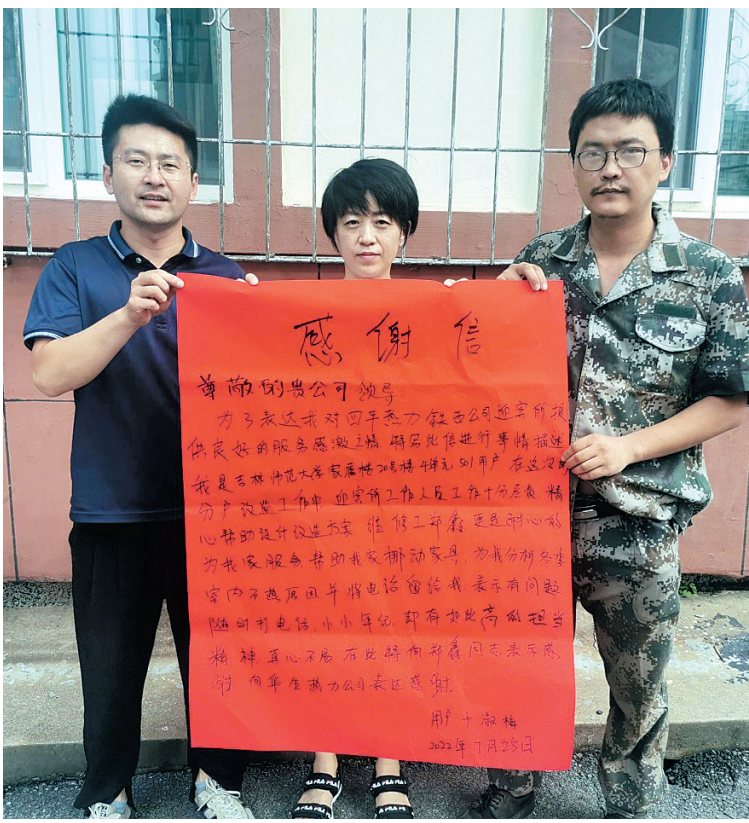 感谢信
尊敬的贵公司领导:
为了表达我对四平热力铁西公司迎宾所提
供良好的服务感激之情 特写此信进行事情描述
我是吉林师范大学家属楼20号楼4单元501用户 在这次的
分户改造工作中 迎宾所工作人员工作十分负责 精
心帮助设计改造方案 维修工郑鑫更是耐心的
为我家服务 帮助我家挪动家具,为我分析冬季
室内不热原因 并将电话留给我 表示有问题
随时打电话,小小年纪,却有如此高的担当
精神 真心不易 在此特向郑鑫同志表示感
谢 向华生热力公司表达感谢.
用户 于淑梅
2022年7月25日
FILA FILA FILA